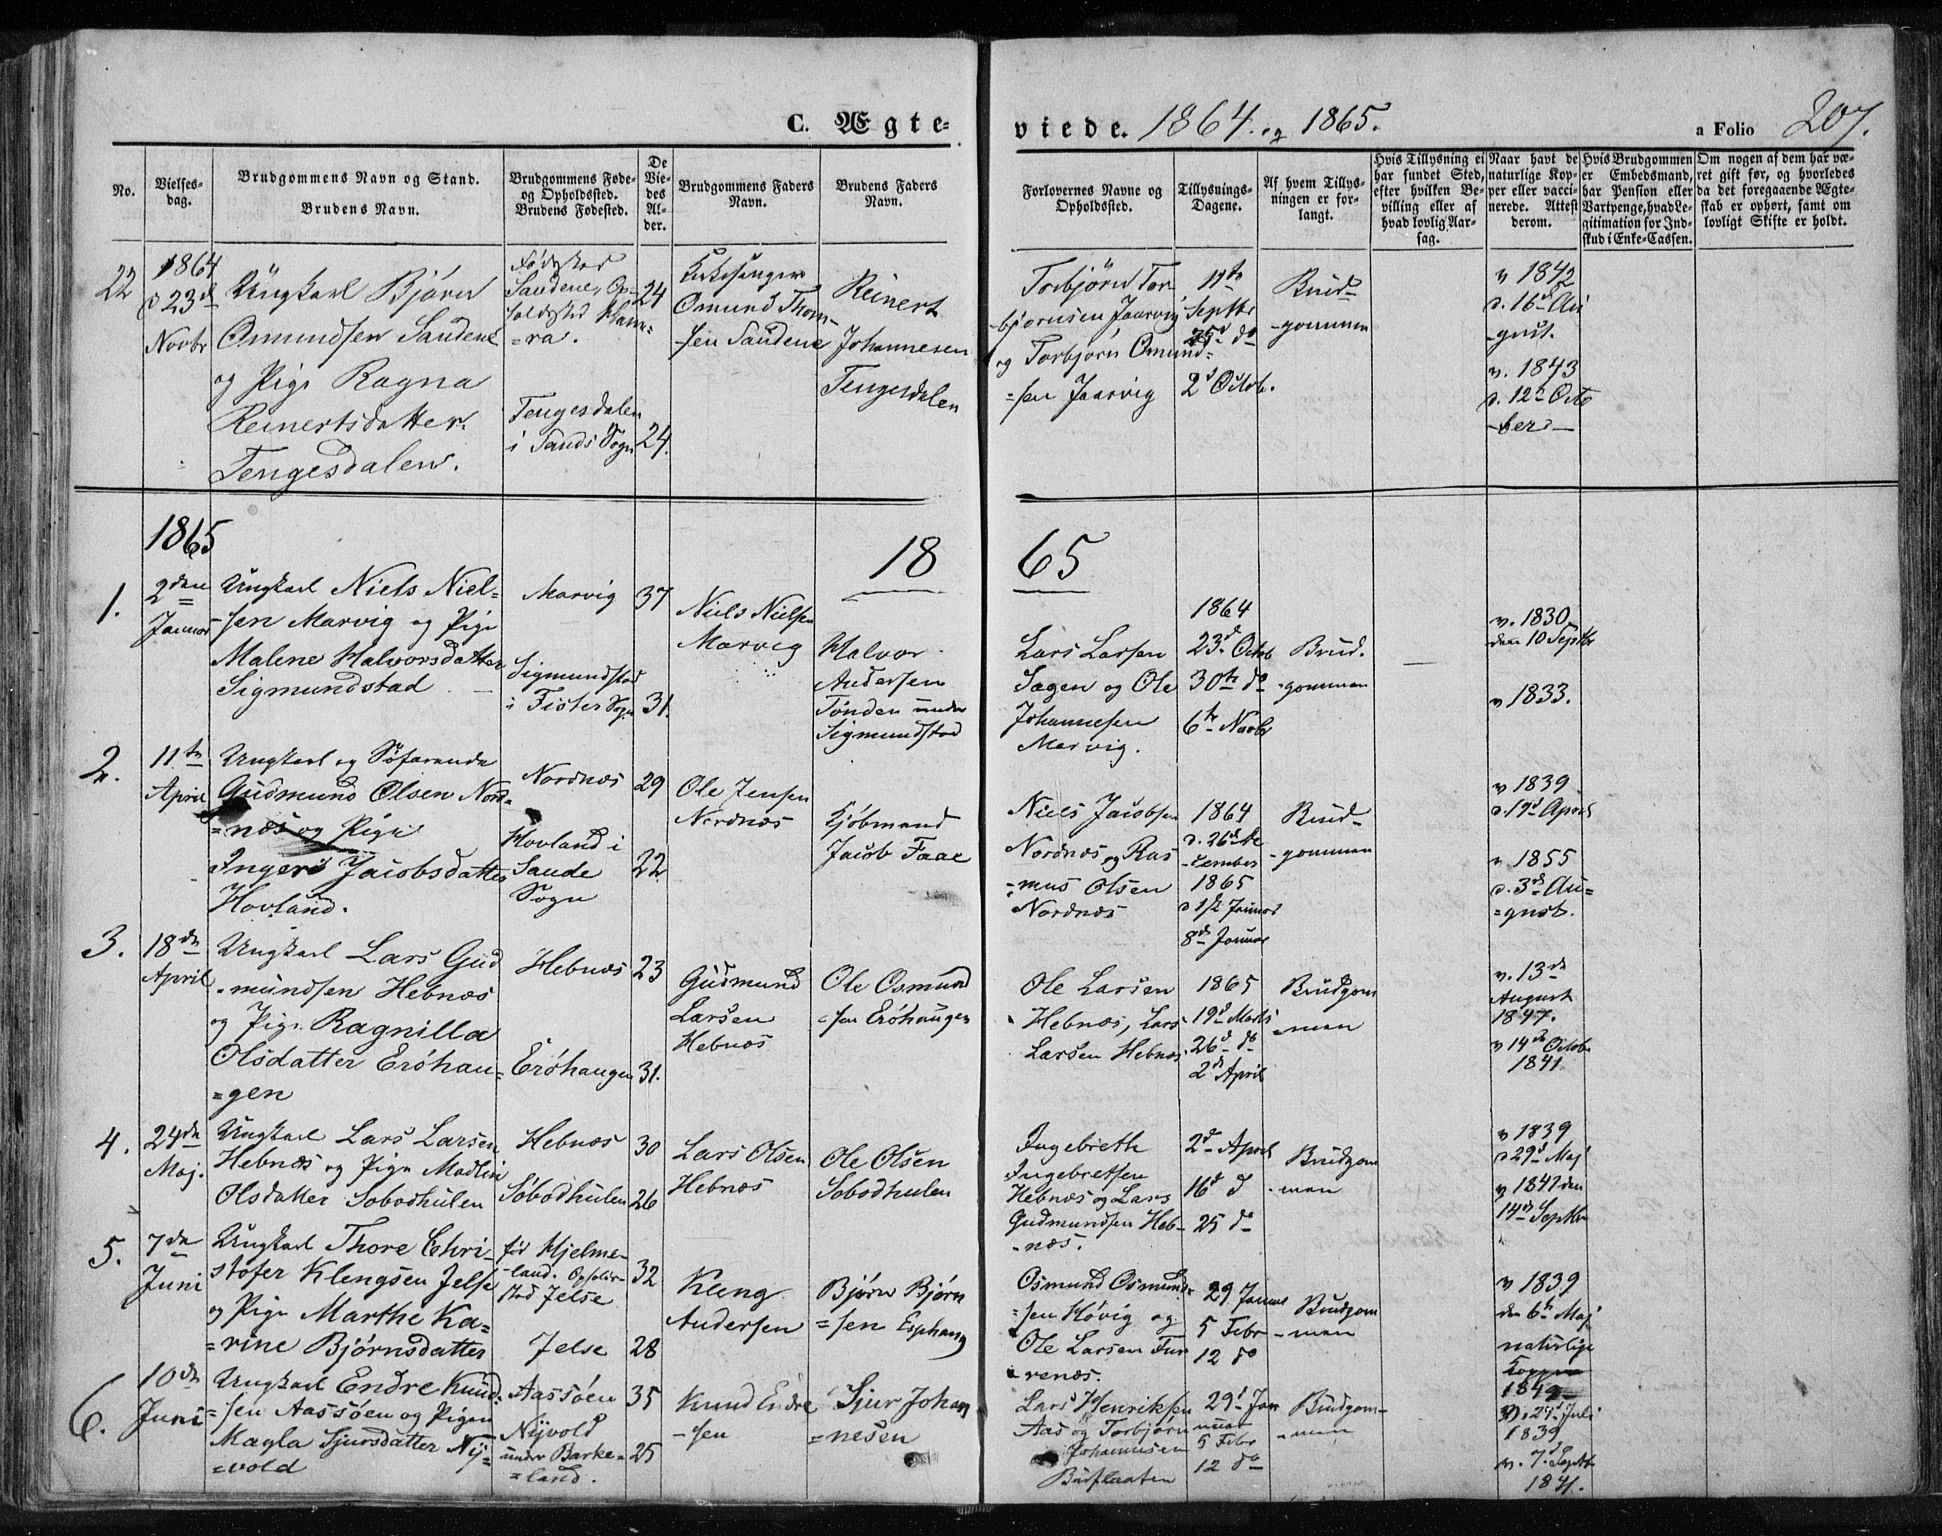 C. Ægte-
viede. 1864. og 1865.
a Folio 207.
No.
Vielses-
dag.
Brudgommens Navn og Stand.
Brudens Navn.
Brudgommens Føde-
og Opholdssted.
Brudens Fødested.
De
Vie-
des
Al-
der.
Brudgommens Faders
Navn.
Brudens Faders
Navn.
Forlovernes Navne og
Opholdssted.
Tillysnings-
Dagene.
Af hvem Tillys-
ningen er for-
langt.
Hvis Tillysning ei
har fundet Sted,
efter hvilken Be-
villing eller af
hvad lovlig Aar-
sag.
Naar havt de
naturlige Kop-
per eller vacci-
nerede. Attest
derom.
Hvis Brudgommen
er Embedsmand,
har Pension eller
Vartpenge, hvad Le-
gitimation for Ind-
skud i Enke-Cassen.
Om nogen af dem har væ-
ret gift før, og hvorledes
da det foregaaende Ægte-
skab er ophørt, samt om
lovligt Skifte er holdt.
22
1864
d 23d
Novbr
Ungkarl Bjørn
Omundsen Saudene
og Pige Ragna
Reinertsdatter
Tengesdalen.
Fødested
Saudene, Op-
holdssted Ham-
=ra.
Tengesdalen
i Sands Sogn
24
24.
Kirkesanger
Omund Thom-
-sen Saudene
Reinert
Johannesen
Tengesdalen
Torbjørn Tor-
-bjørnsen Jaarvig
og Torbjørn Omund-
=sen Jaarvig
11te
Septbr
25d do
2d Octob.
Brud-
-gommen
v 1842
d. 16d Au
-gust.
v. 1843
d. 12te Octo
-ber-
1865
18 65
1.
2den
Januar
Ungkarl Niels Niel-
-sen Marvig og Pige
Malene Halvorsdatter
Sigmundstad
Marvig
Sigmundstad
i Fister Sogn
37
31.
Niels Nielsen
Marvig
Halvor
Andersen
Tønden under
Sigmundstad
Lars Larsen
Sagen og Ole
Johannesen
Marvig.
1864
23d Octob
30te do
6te Novbr
Brud-
-gommen
v. 1830
den 10 Septbr
v 1833.
2.
11te
April
Ungkarl og Søfarende
Gudmund Olsen Nord-
=næs og Pige
Inger Jacobsdatter
Hovland.
Nordnæs
Hovland i
Saude
Sogn
29
22
Ole Jensen
Nordnæs
Kjøbmand
Jacob Faae
Niels Jacobsen
Nordnæs og Ras
=mus Olsen
Nordnæs
1864
d. 26d De
-cember
1865
d 1ste Januar
8d Januar
Brud-
-gommen
v 1839
d. 19d April
v 1855
d. 3d Au=
=gust.
3.
18de
April
Ungkarl Lars Gud
-mundsen Hebnæs
og Pige Ragnilla
Olsdatter Erøhau-
=gen
Hebnæs
Erøhaugen
23
31.
Gudmund
Larsen
Hebnæs
Ole Osmund
=sen Erøhaugen
Ole Larsen
Hebnæs, Lars
Larsen Hebnæs
1865
19d Marts
26d do
2d April
Brudgom
-men
v. 13de
August
1847.
v 14de Octobr
1841
4.
24de
Maj.
Ungkarl Lars Larsen
Hebnæs og Pige Madlin
Olsdatter Sobodhulen
Hebnæs
Søbodhulen
30
26
Lars Olsen
Hebnæs
Ole Olsen
Sobodhulen
Ingebreth
Ingebretsen
Hebnæs og Lars
Gudmundsen Heb-
-næs.
2d April
16d d
25 do
Brudgom
-men
v 1839
d 29d Maj
v 1841 den
14de Septbr
5.
7de
Juni
Ungkarl Thore Chri-
stofer Klengsen Jelse
og Pige Marthe Ka=
=rine Bjørnsdatter
fød Hjelme-
-land. Opholds-
sted Jelse
Jelse
32
28
Kleng
Andersen
Bjørn Bjørn
=sen Esphaug
Osmund Osmund-
=sen Høvig og
Ole Larsen Fur
-renæs.
29 Januar
5 Febr
12 do
Brudgom
-men
v 1839
den 6te Maj
naturlige
Kopper
1849
6.
10de
Juni
Ungkarl Endre Knud-
=sen Aassøen og Pigen
Magla Sjursdatter Ny=
=vold
Aassøen
Nyvold
under Barke=
=land.
35
25
Knud Endre
-sen
Sjur Johan
=nesen
Lars Henriksen
Aas og Torbjørn
Johannesen
29d Jan
nuar
5 Febr
12 do
Brudgom-
-men
v. 29d Juli
1839
v. 7d Septbr
1841.